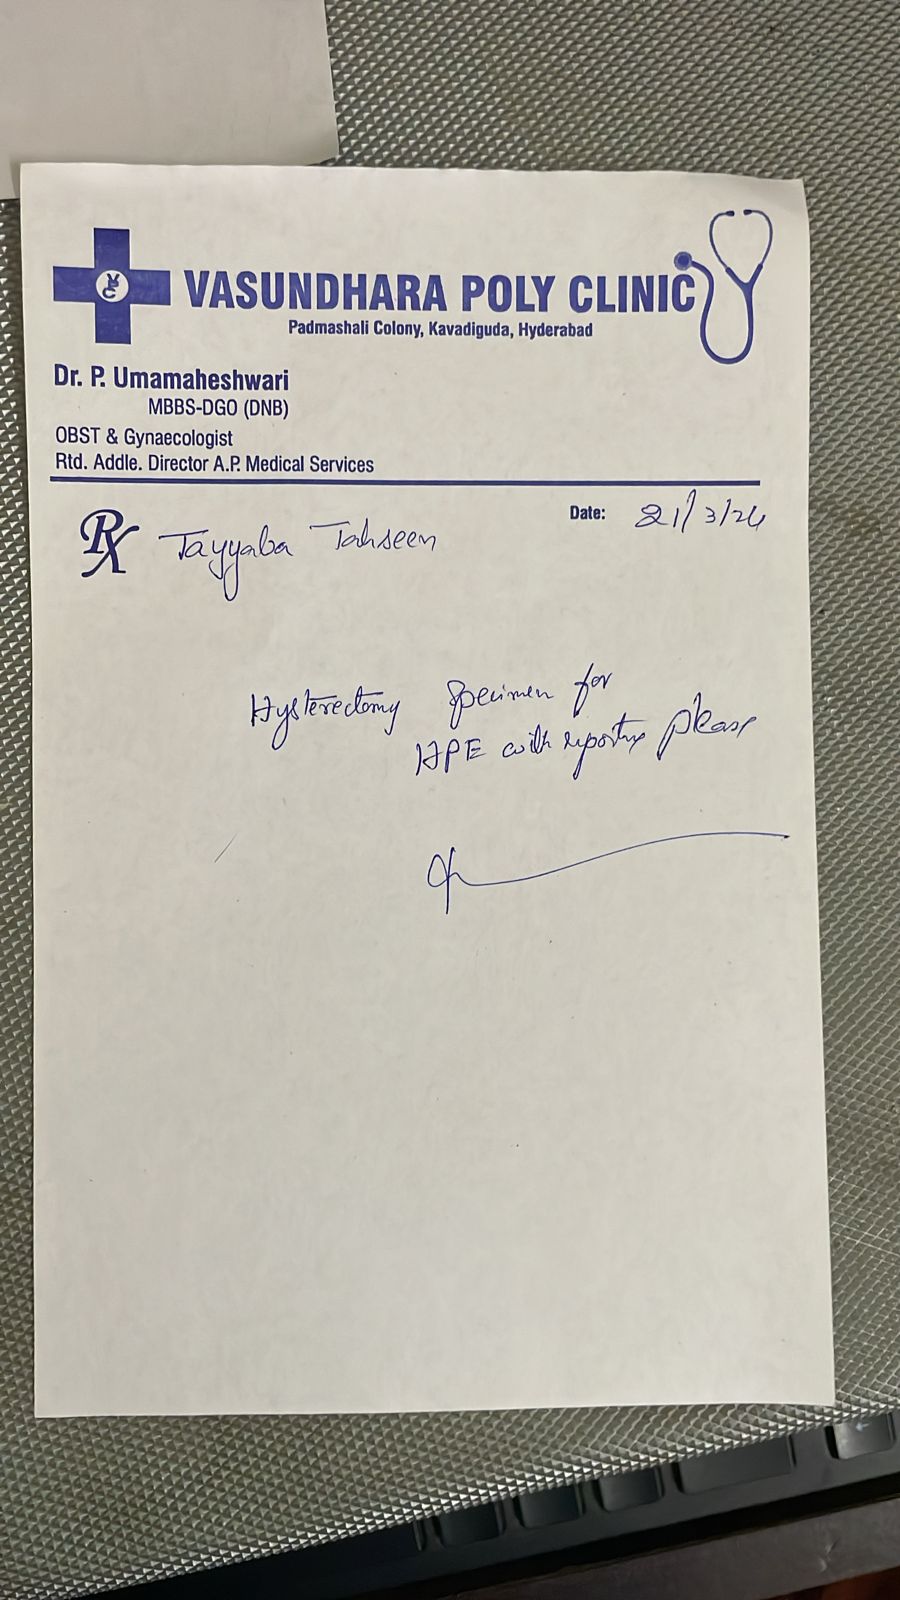 VPC
VASUNDHARA POLY CLINIC
Padmashali Colony, Kavadiguda, Hyderabad
Dr. P. Umamaheshwari
MBBS-DGO (DNB)
OBST & Gynaecologist
Rtd. Addle. Director A.P. Medical Services
Date: 21/3/24
Rx Tayyaba Tahseen
Hysterectomy Specimen for
HPE with reporting please